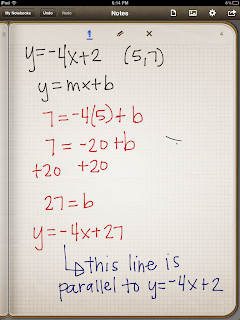 iPad
5:14 PM
6%
My Notebooks Undo Redo Notes
4
y=-4x+2 (5,7)
y=mx+b
7=-4(5)+b
7=-20+b
+20 +20
27=b
y=-4x+27
this line is
parallel to y=-4x+2